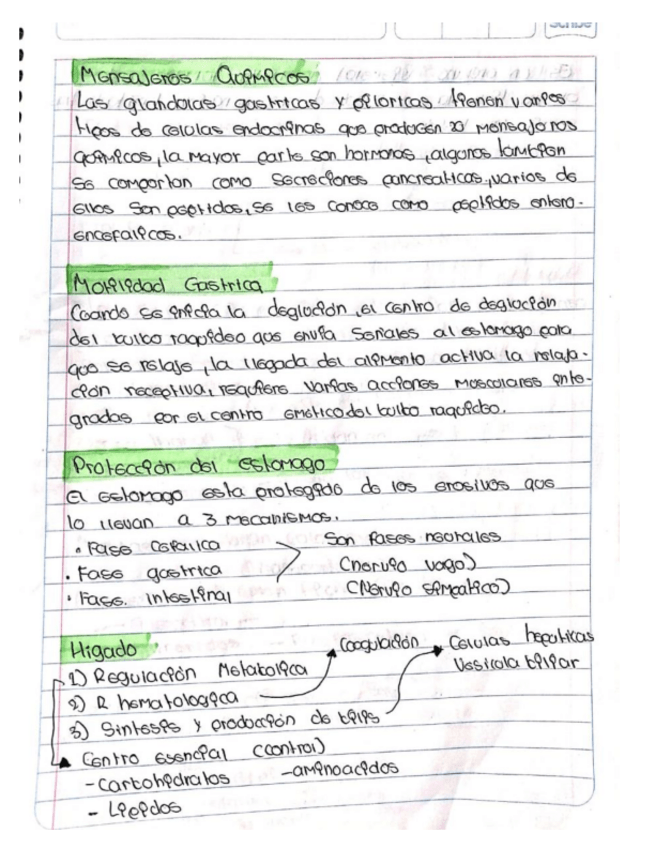 Scribe
Mensajeros Químicos
Las glandulas gastricas y piloricas tienen varios
tipos de celulas endocrinas que producen 20 mensajeros
quimicos, la mayor parte son hormonas, algunos tambien
se comportan como secreciones pancreaticas, varios de
ellos son peptidos, se les conoce como peptidos entero-
encefalicos.
Motilidad Gastrica
Cuando se inicia la deglución, el centro de deglución
del bulbo raquideo que envia señales al estomago para
que se relaje, la llegada del alimento activa la relaja-
ción receptiva, requiere varias acciones musculares inte-
gradas por el centro emético del bulbo raquideo.
Protección del estomago
El estomago esta protegido de los erosivos que
lo llevan a 3 mecanismos.
• Fase Cefalica
• Fase gastrica
• Fase intestinal
Son fases neurales
(nervio vago)
(Nervio simpatico)
Higado
1) Regulación Metabolica
2) R hematologica
Coagulación
3) Sintesis y producción de bilis
Celulas hepaticas
Vesicula biliar
Centro esencial (control)
- Carbohidratos - aminoacidos
- Lipidos